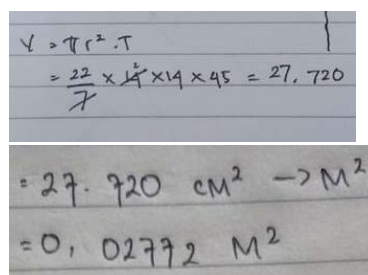 V = πr² . T
= 22/7 × 14 2 × 14 × 45 = 27.720
= 27.720 cm² → M²
= 0,02772 M²